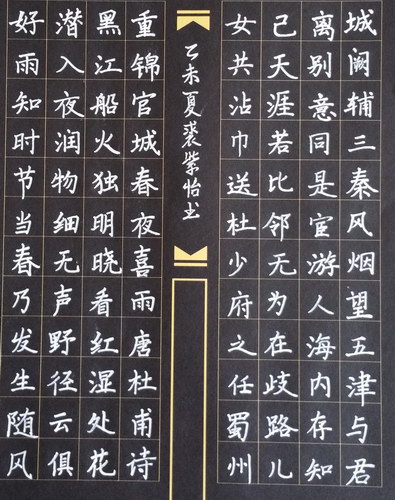 城阙辅三秦风烟望五津与君
离别意同是宦游人海内存知
己天涯若比邻无为在歧路儿
女共沾巾送杜少府之任蜀州
好雨知时节当春乃发生随风
潜入夜润物细无声野径云俱
黑江船火独明晓看红湿处花
重锦官城春夜喜雨唐杜甫诗
乙未夏裘紫怡书